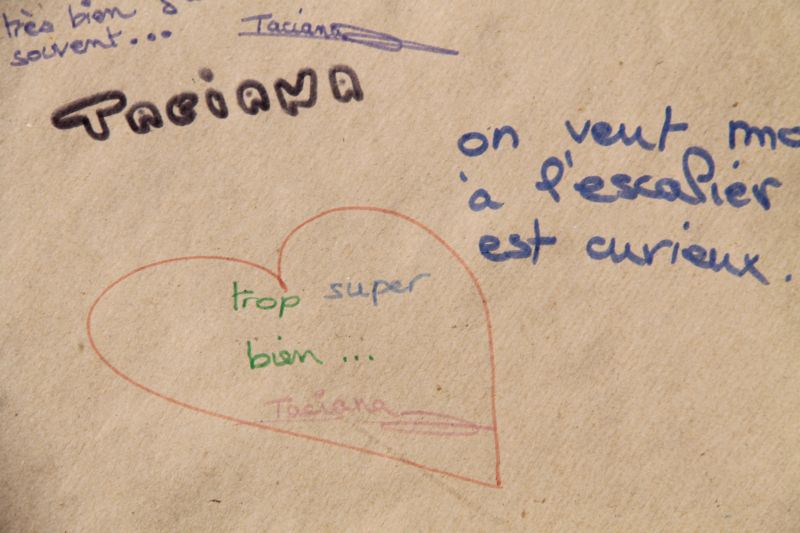 très bien
souvent... Taciana
TACIANA
on veut
à l'escalier
est curieux.
trop super
bien ...
Taciana